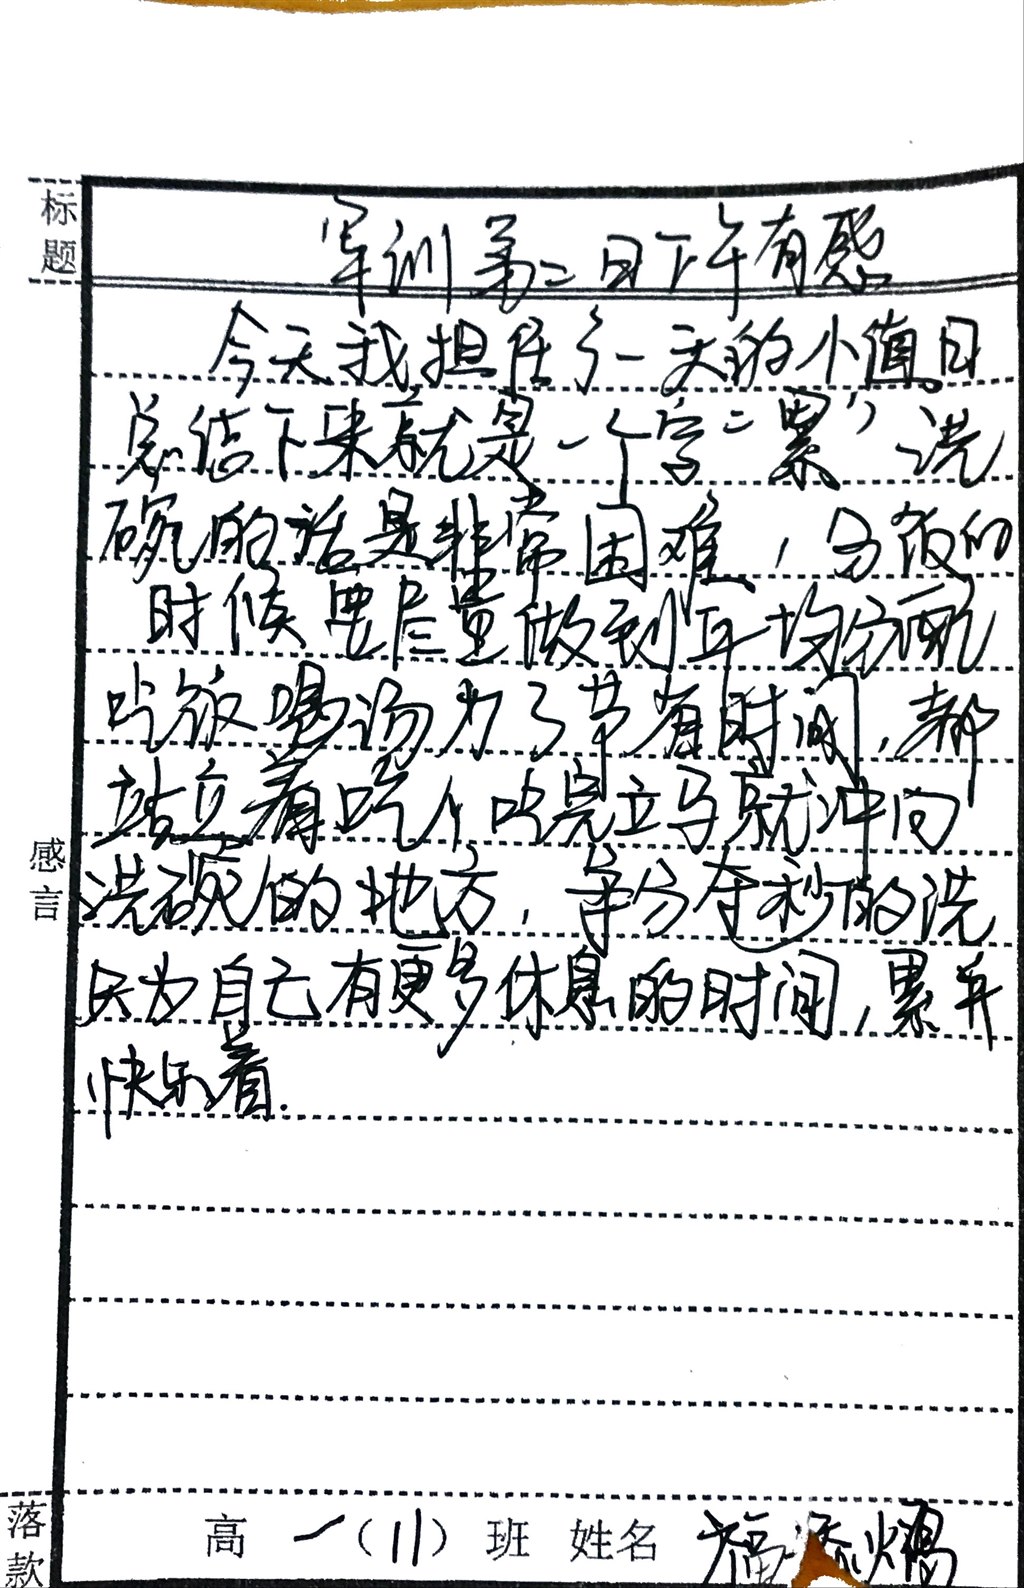 标题
军训第二日下午有感
今天我担任了一天的小值日
总结下来就是一个字“累”洗
碗的话是非常困难，分饭的
时候要尽量做到平均分配
吃饭喝汤为了节省时间，都
站立着吃，吃完立马就冲向
洗碗的地方，争分夺秒的洗
因为自己有更多休息的时间，累并
快乐着.
感言
落款 高一（11）班 姓名